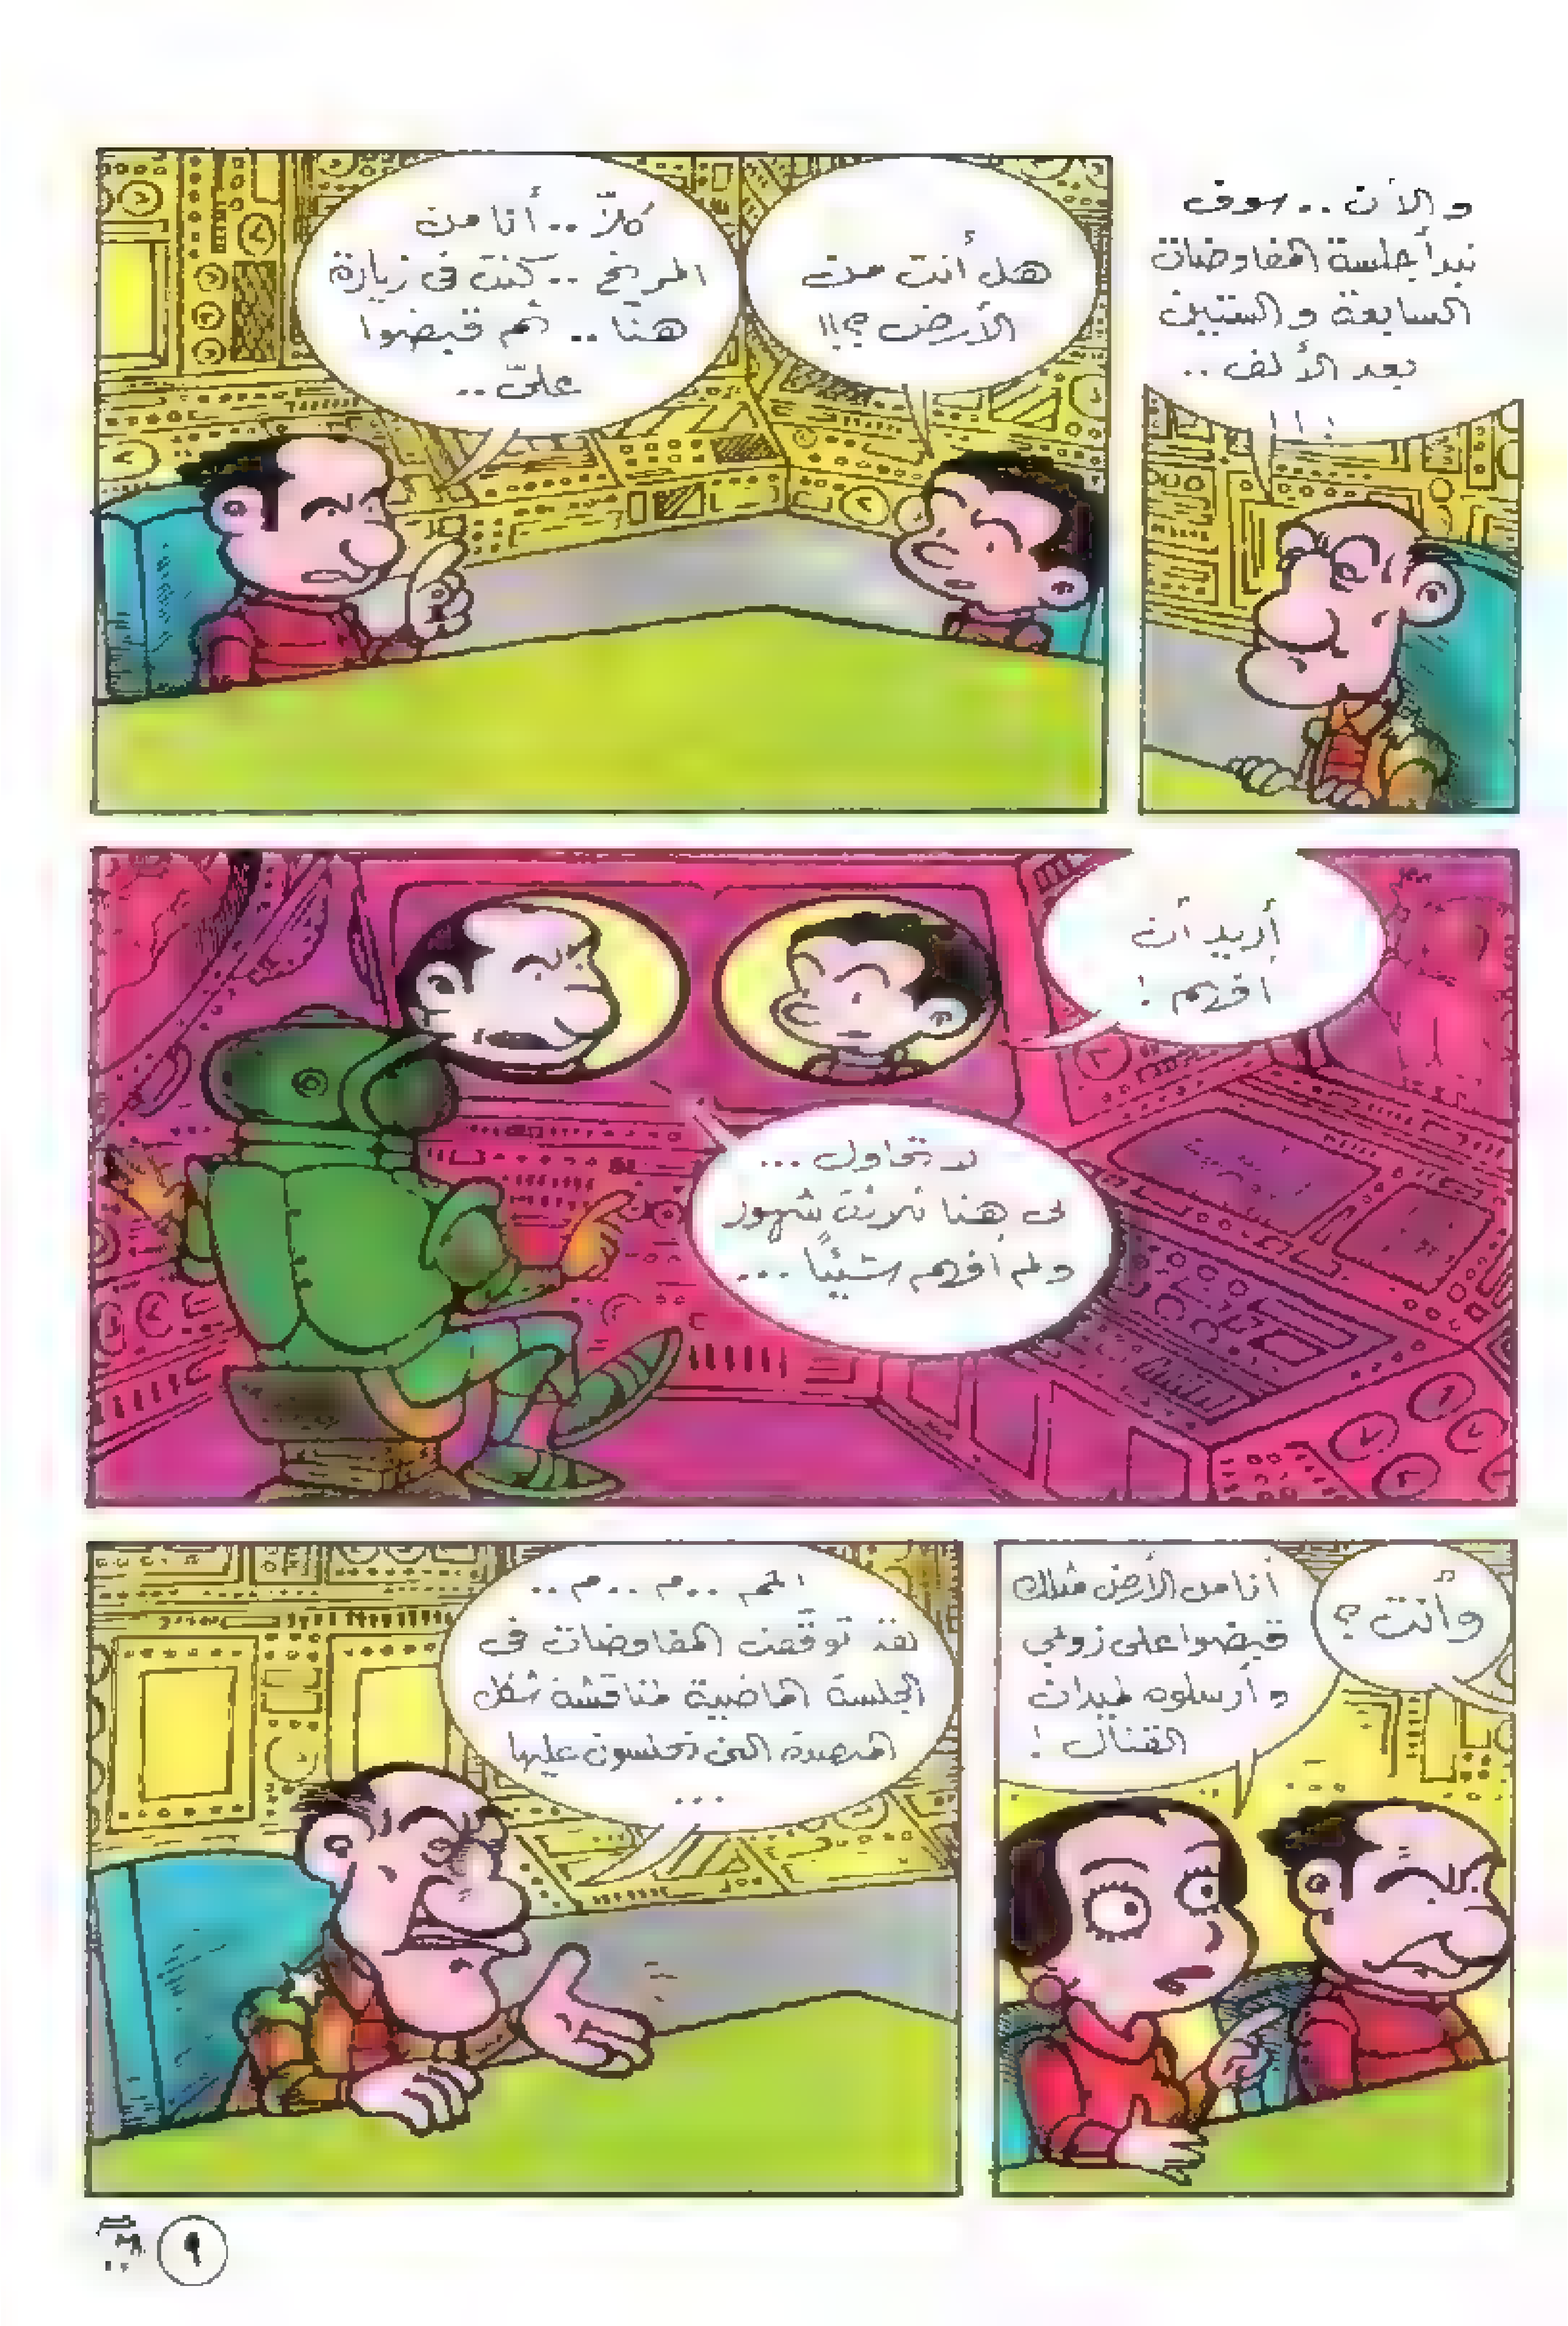 والآن.. سوف
نبدأ جلسة المفاوضات
السابعة والستين
بعد الألف..
!!!
هل أنت من
الأرض؟!!
كلاّ.. أنا من
المريخ.. كنت فى زيارة
هنا.. ثم قبضوا
علىّ..
أريد أن
أفهم!
لا تحاول...
لى هنا ثلاثة شهور
ولم أفهم شيئًا...
وأنت؟
أنا من الأرض مثلك
قبضوا على زوجى
وأرسلوه لميدان
القتال!
احم ..م ..م ..
لقد توقفت المفاوضات فى
الجلسة الماضية لمناقشة شكل
المنضدة التى تجلسون عليها
...
٩